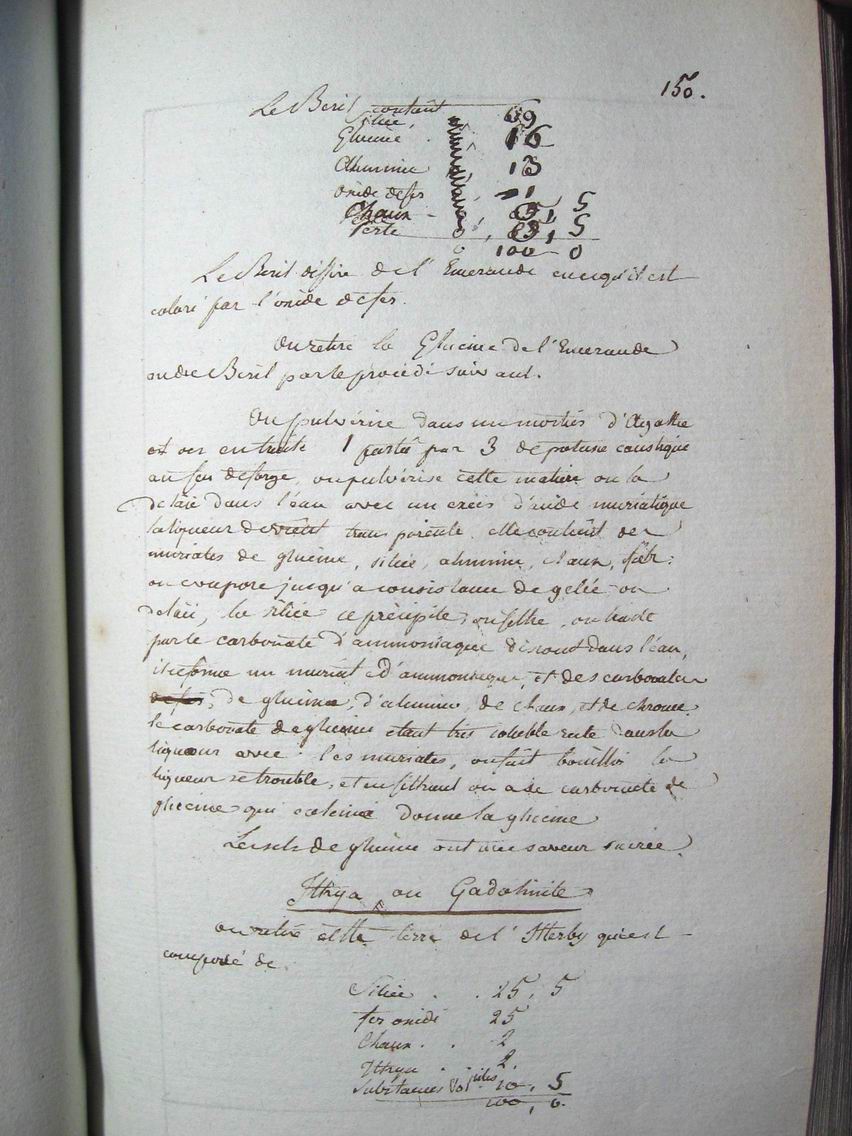 150.
Le Beril contient
Silice, 69
Glucine . 16
Alumine 13
oxide de fer 1
Chaux - 5
Perte , 5
100 - 0
Le Beril differe de l'Emeraude en ce qu'il est
coloré par l'oxide de fer.
On retire la Glucine de l'Emeraude
ou du Beril par le procédé suivant.
On pulvérise dans un mortier d'Agathe
et on en traite 1 partie par 3 de potasse caustique
au feu de forge, on pulvérise cette matière on la
delaie dans l'eau avec un excès d'acide muriatique
la liqueur devient transparente. elle contient des
muriates de glucine, silice, alumine, chaux, fer:
on evapore jusqu'a consistance de gelée on
delaie, la silice ce précipite, on filtre, on traite
par le carbonate d'ammoniaque disout dans l'eau,
il se forme un muriate d'ammoniaque, et des carbonates
de fer, de glucine, d'alumine, de chaux, et de chrome.
le carbonate de glucine etant très soluble reste dans la
liqueur avec les muriates, on fait bouillir la
liqueur se trouble, et en filtrant on a le carbonate de
glucine qui calciné donne la glucine
Les sels de glucine ont une saveur sucrée.
Ithya ou Gadolinite
on retire cette terre de l'Itterby qui est -
composé de.
Silice . . 25, 5
fer oxidé 25
Chaux . . 2
Ithya . . 2,
Substances Volatiles 10, 5
100, 0.